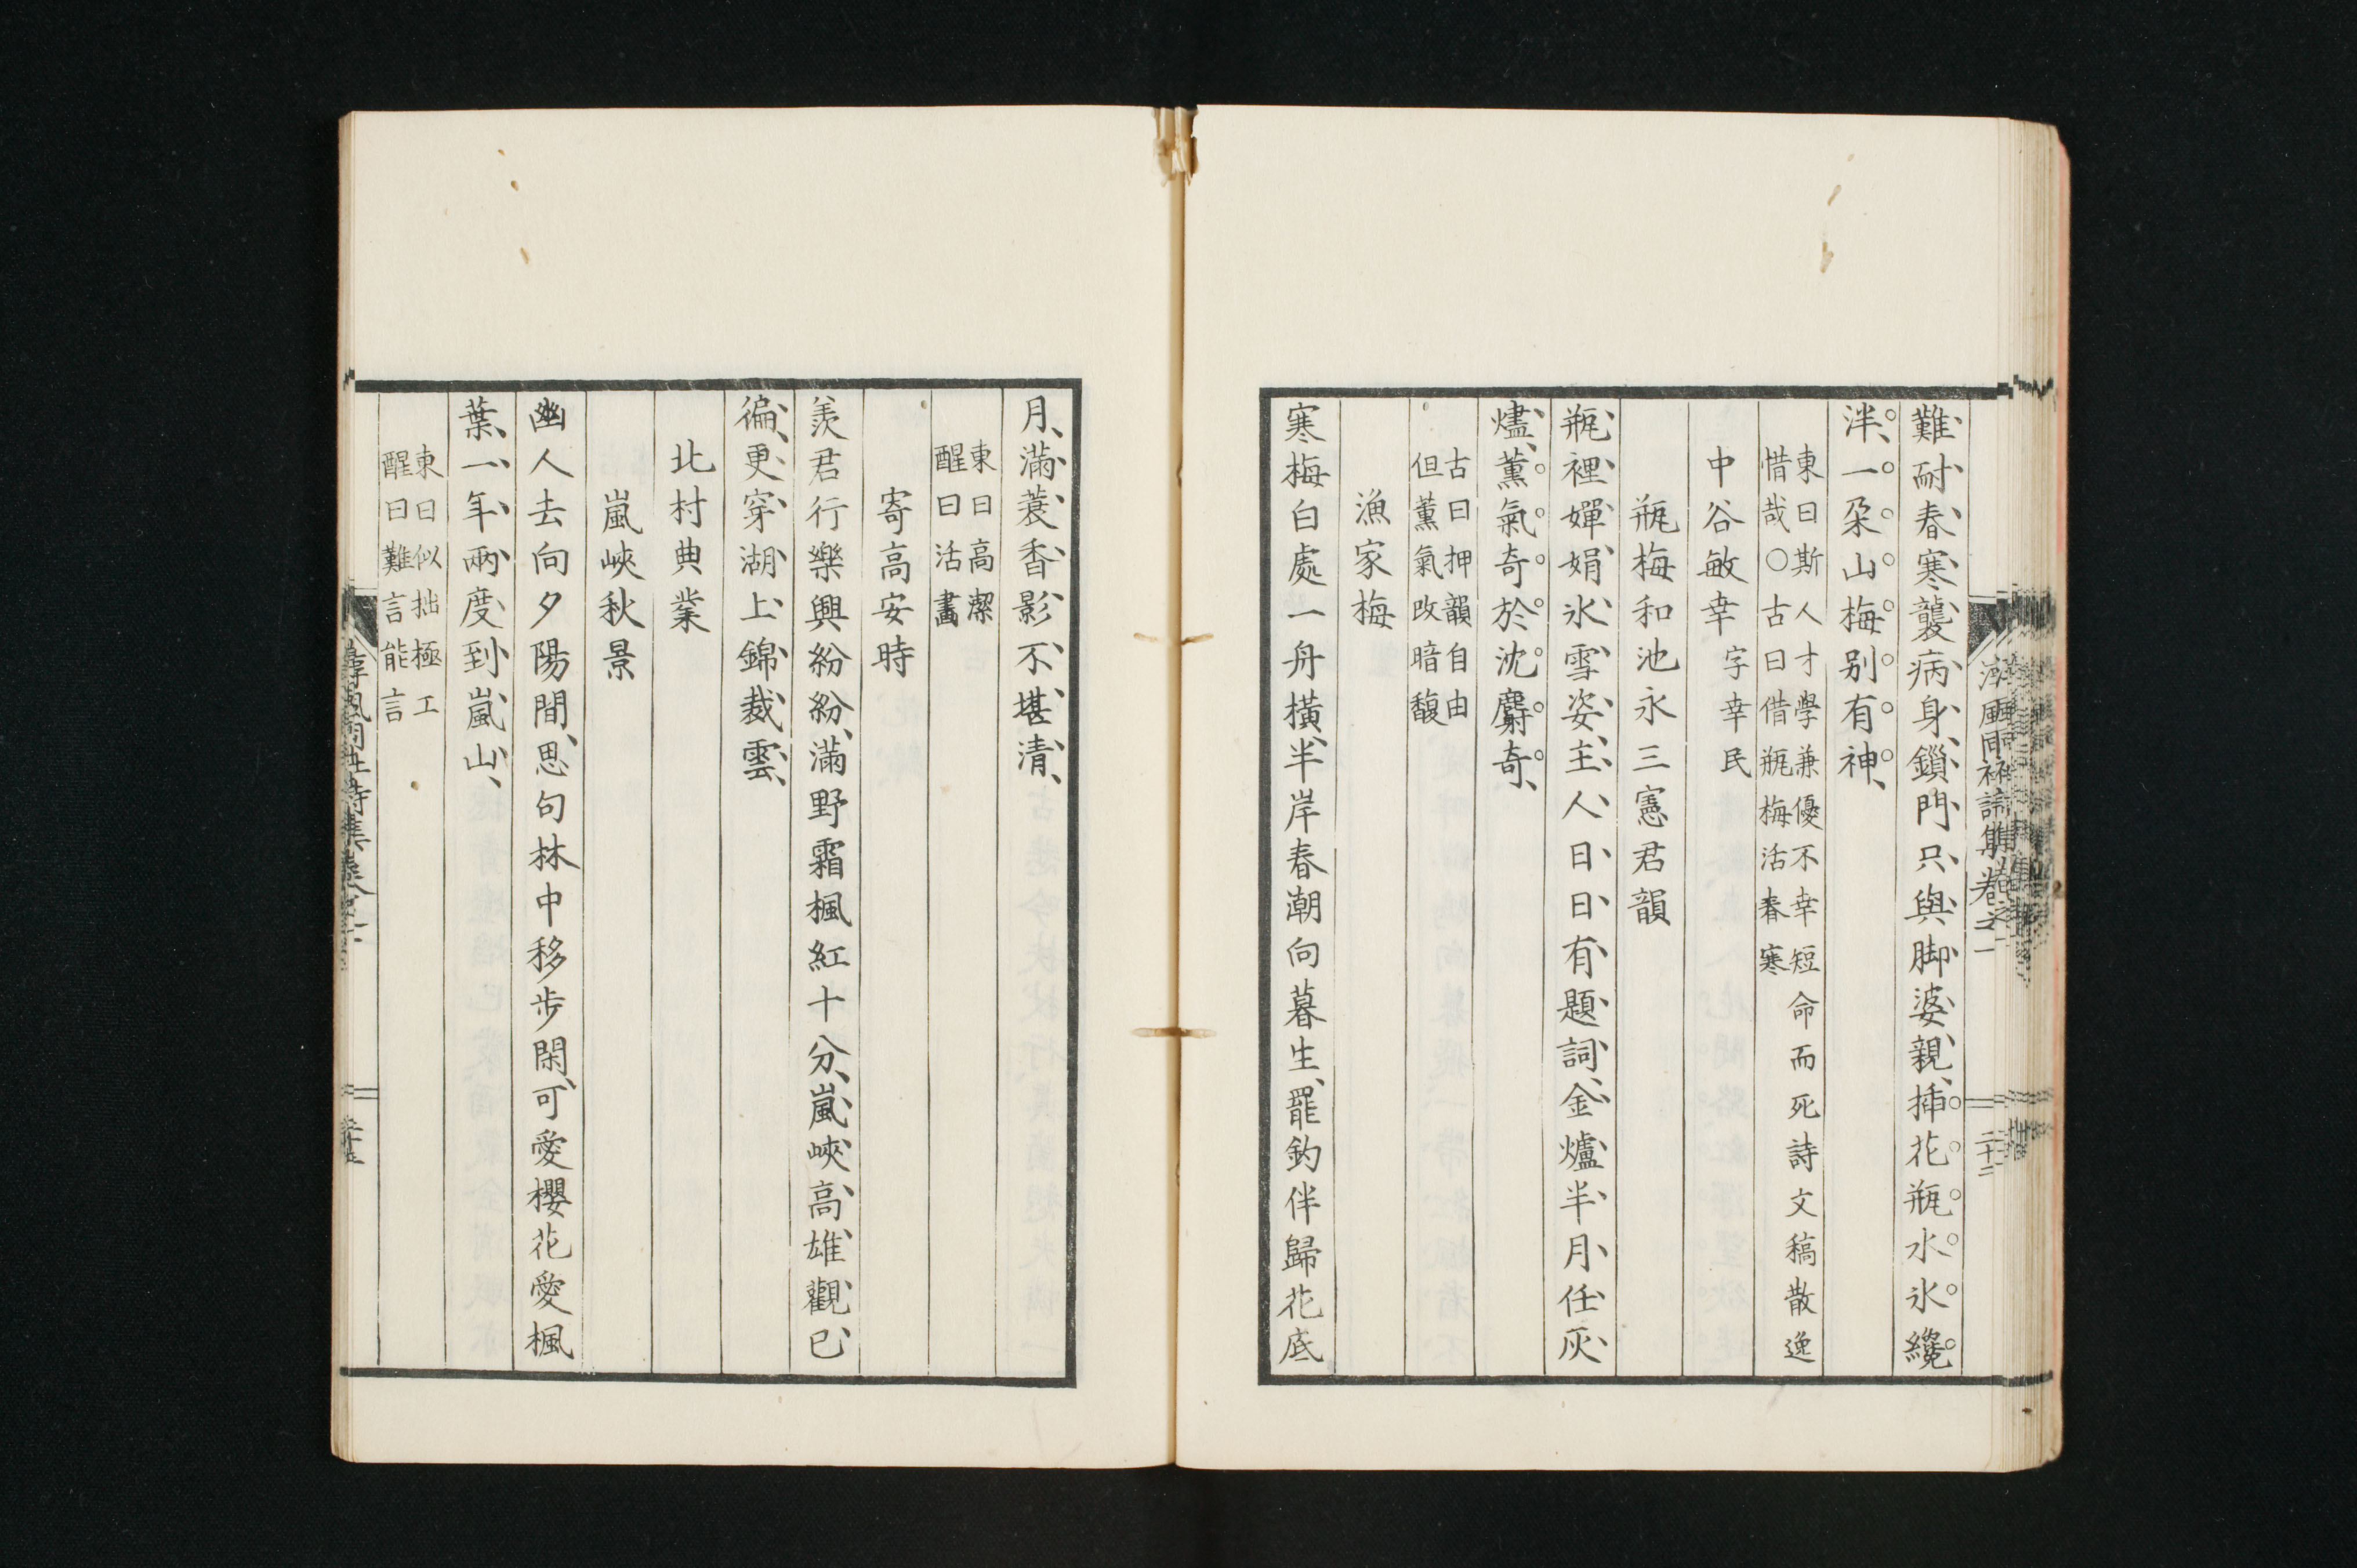 難耐春寒襲病身、鎻門只與脚婆親、揷花瓶水氷纔
泮、一朶山梅別有神、
東曰斯人才學兼優不幸短命而死詩文稿散逸
惜哉〇古曰借瓶梅活春寒
中谷敏幸 字幸民
瓶梅和池永三憲君韻
瓶裡嬋娟氷雪姿、主人日日有題詞、金爐半月任灰
燼、薰氣奇於沈麝奇、
古曰押韻自由
但薰氣改暗馥
漁家梅
寒梅白處一舟橫、半岸春潮向暮生、罷釣伴歸花底
月、滿蓑香影不堪清、
東曰高潔
醒曰活畫
寄高安時
羨君行樂興紛紛、滿野霜楓紅十分、嵐峽高雄觀已
徧、更穿湖上錦裁雲、
北村典業
嵐峽秋景
幽人去向夕陽間、思句林中移步閑、可愛櫻花愛楓
葉、一年兩度到嵐山、
東曰似拙極工
醒曰難言能言